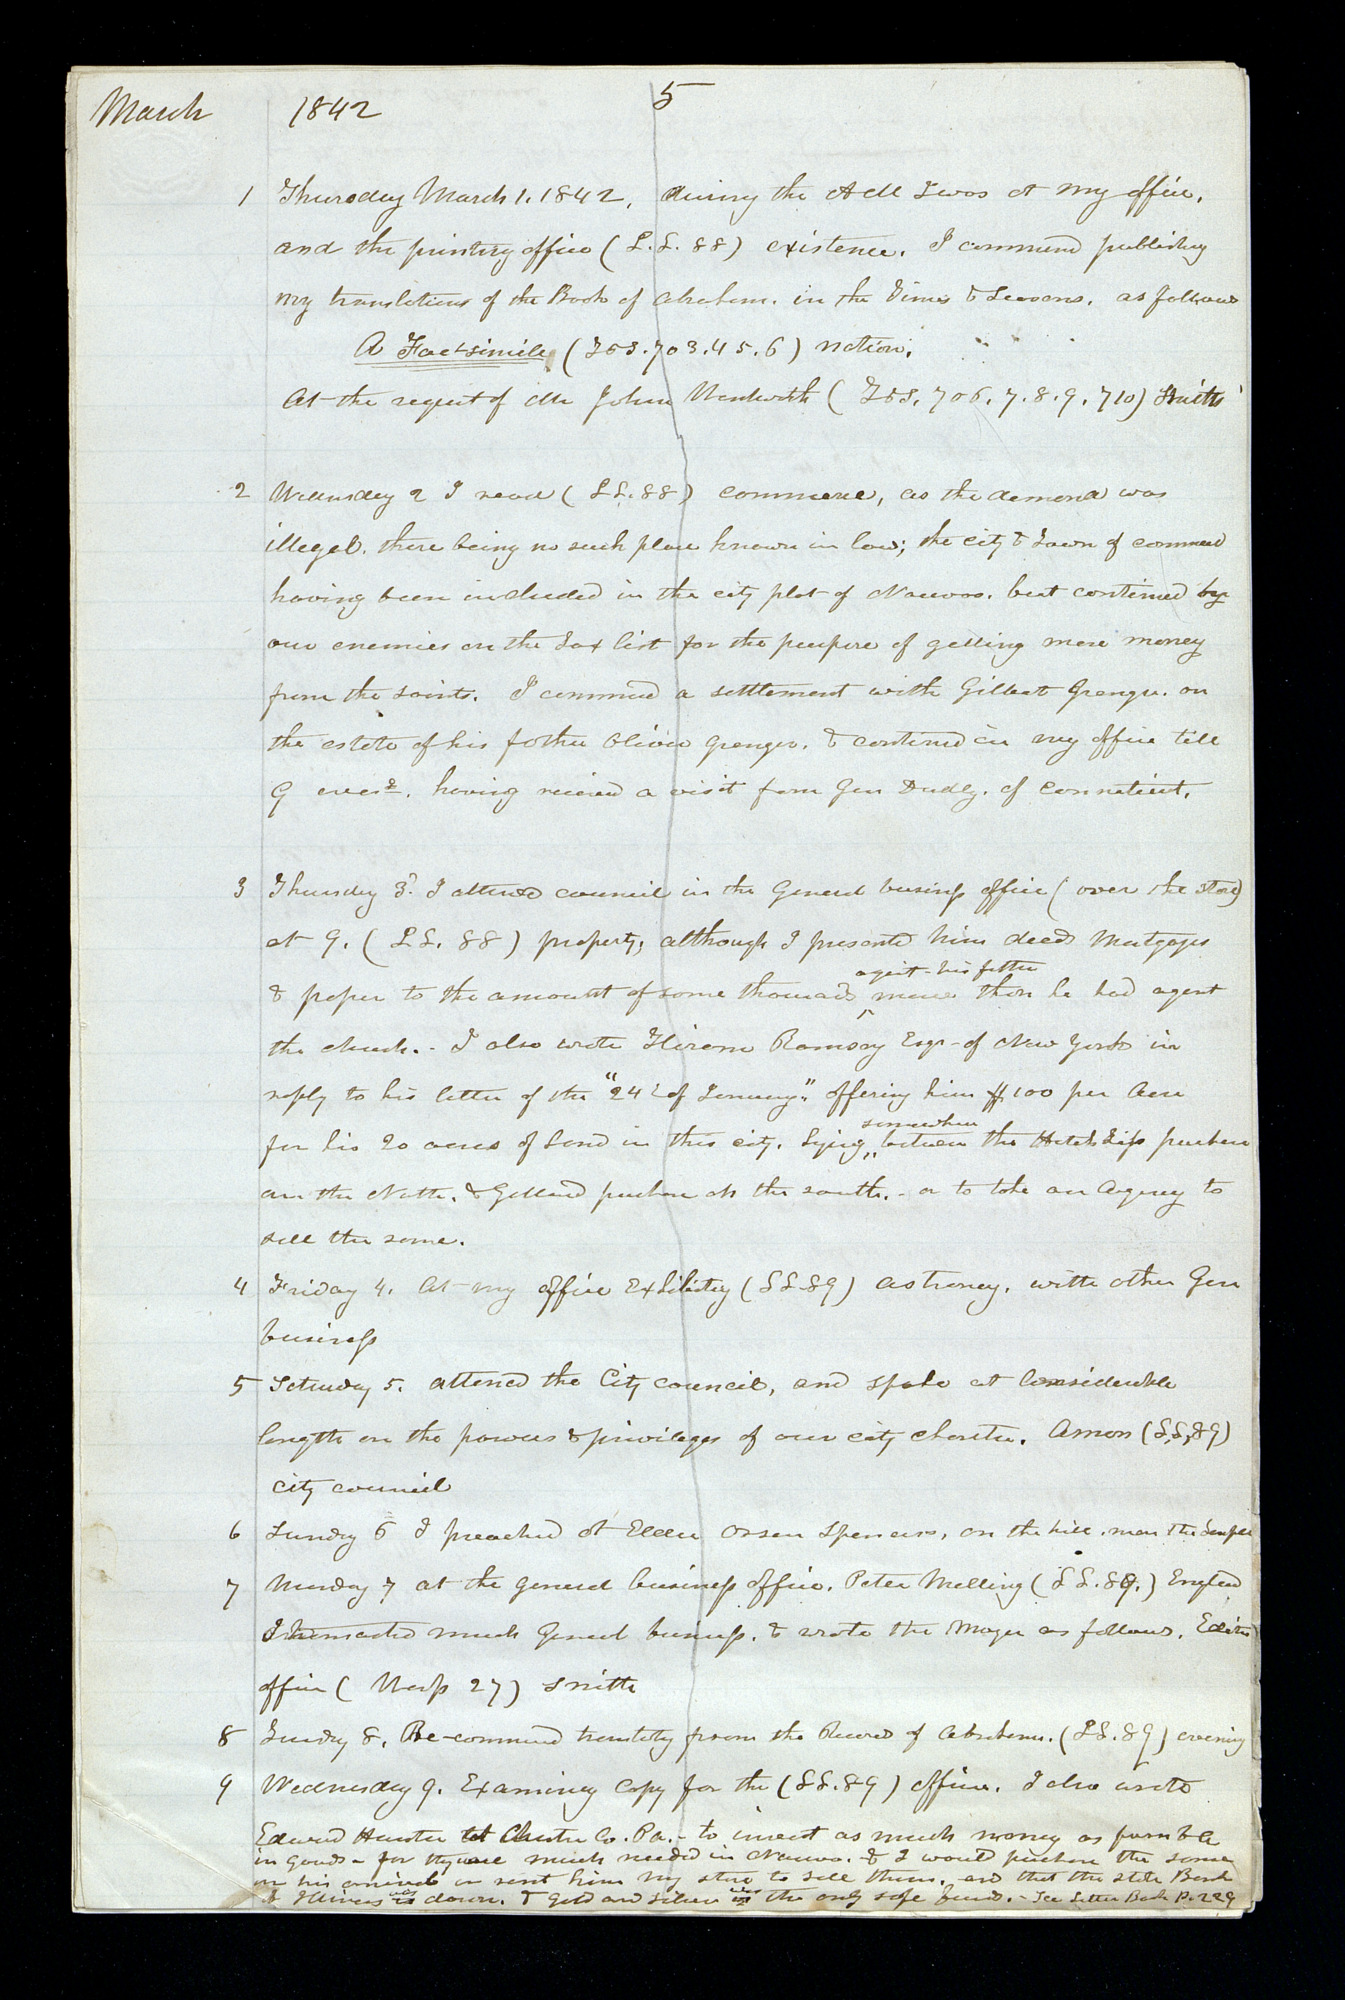 March 1842 5
1 Thursday March 1. 1842, during the A M I was at my office,
and the printing office (L.L. 88) existence. I commend publishing
my translations of the Book of Abraham. in the Times & Seasons. as follows
A Fac-simile (T&S. 703. 4 5. 6) nation.
At the request of Mr John Wentworth (T&S. 706. 7. 8. 9. 710) Smith
2 Wednsday 2 I read (L L. 88) commerce, as the demand was
illegal. there being no such place known in law; the city & Town of commerce
having been included in the city plot of Nauvoo. but continued by
our enemies on the Tax list for the purpose of getting more money
from the saints. I commend a settlement with Gilbert Granger. on
the estate of his father Oliver Granger. & continued in my office till
9 eveng. having recieved a visit from Gen Dudly. of Connecticut.
3 Thursday 3d. I attend council in the General business office (over the store)
at 9. (L L. 88) property; although I presented him deeds Mortgages
& paper to the amount of some thousands more than he had agent
agent - his father
the church. - I also wrote Hiram Ramsay Esqr - of New York in
reply to his letter of the "24th of January." offering him $100 per Acre
for his 20 acres of Land in this city. lying between the Hotchkiss purchase
somewhere
on the North. & Galland purchase on the south. - or to take an Agency to
sell the same.
4 Friday 4. At my office Exhibiting (L L 89) astrony. with other Gen
business
5 Saturday 5. attend the City council, and spoke at Considerable
length on the powers & privileges of our city charter. Amon (L,L,89)
city council
6 Sunday 6 I preached at Elder Orson Spencers, on the hill. near the Temple
7 Monday 7 at the general business office. Peter Melling (L L. 89.) England
I transacted much General business. & wrote the Mayor as follows. Editors
office (Wasp 27) Smith
8 Tuesday 8. Re-commend translatg from the Records of Abraham. (L L. 89) evening
9 Wednesday 9. Examining Copy for the (L L. 89) office. I also wrote
Edward Hunter Chester Co. Pa. - to invest as much money as possible
in goods - for they are much needed in Nauvoo. & I would purchase the same
on his arrival or rent him my store to sell them. and that the state Bank
of Illinois was down. & Gold and silver was the only safe funds. - See Letter Book P. 229